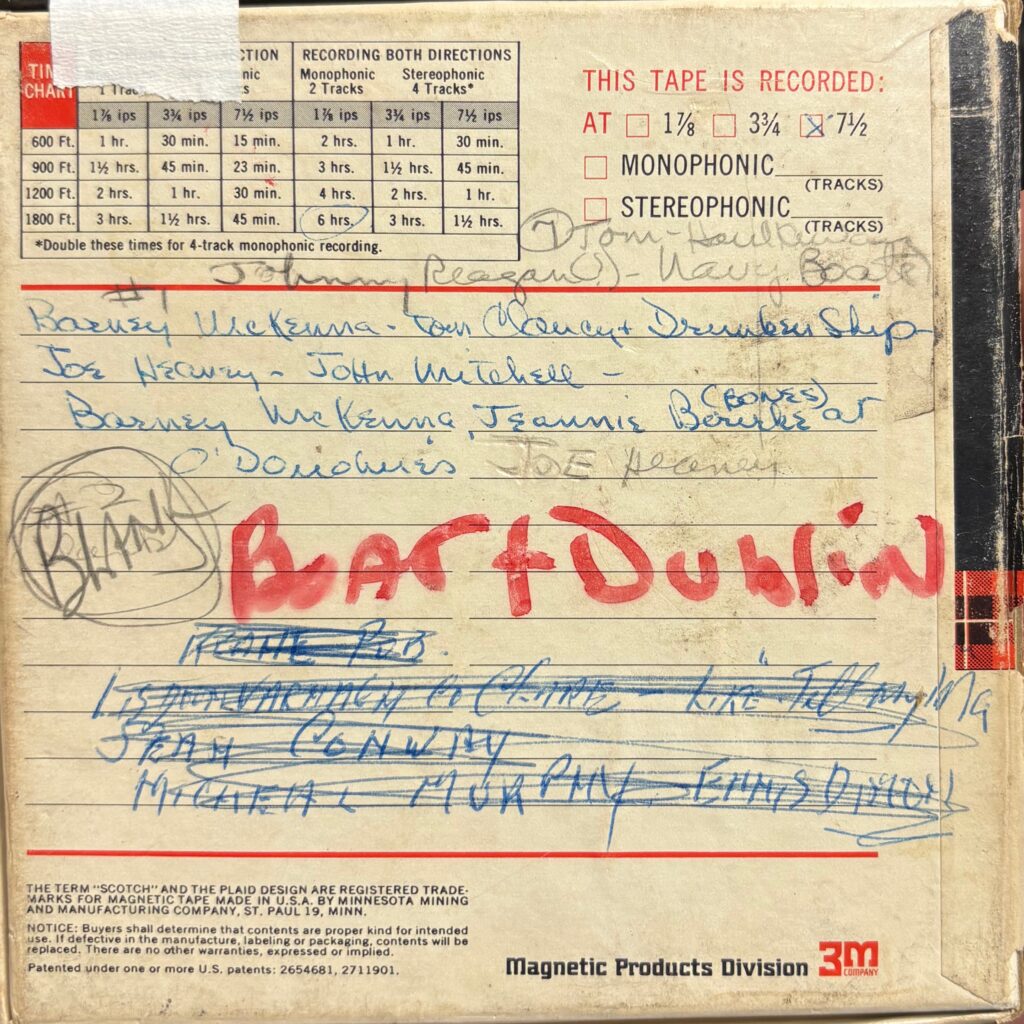 TIME CHART
CTION
RECORDING BOTH DIRECTIONS
Monophonic 2 Tracks
Stereophonic 4 Tracks*
1⅞ ips 3¾ ips 7½ ips 1⅞ ips 3¾ ips 7½ ips
600 Ft. 1 hr. 30 min. 15 min. 2 hrs. 1 hr. 30 min.
900 Ft. 1½ hrs. 45 min. 23 min. 3 hrs. 1½ hrs. 45 min.
1200 Ft. 2 hrs. 1 hr. 30 min. 4 hrs. 2 hrs. 1 hr.
1800 Ft. 3 hrs. 1½ hrs. 45 min. 6 hrs. 3 hrs. 1½ hrs.
*Double these times for 4-track monophonic recording.
THIS TAPE IS RECORDED:
AT 1⅞ 3¾ 7½
MONOPHONIC
(TRACKS)
STEREOPHONIC
(TRACKS)
7 Tom -
#1 Johnny Reagan(s) - Navy Boats
Barney McKenna - Tom Clancy + Drunken Ship -
Joe Heaney - John Mitchell -
Barney McKenna, Jeannie (BONES) Bourke at
O'Donohues JOE Heaney
BLANK
BART + DUBLIN
PUB.
CO CLARE - LIKE "Tiffany"
SEAN CONWAY
MICHEAL MURPHY ENNIS
THE TERM "SCOTCH" AND THE PLAID DESIGN ARE REGISTERED TRADE-
MARKS FOR MAGNETIC TAPE MADE IN U.S.A. BY MINNESOTA MINING
AND MANUFACTURING COMPANY, ST. PAUL 19, MINN.
NOTICE: Buyers shall determine that contents are proper kind for intended
use. If defective in the manufacture, labeling or packaging, contents will be
replaced. There are no other warranties, expressed or implied.
Patented under one or more U.S. patents: 2654681, 2711901.
Magnetic Products Division 3M COMPANY